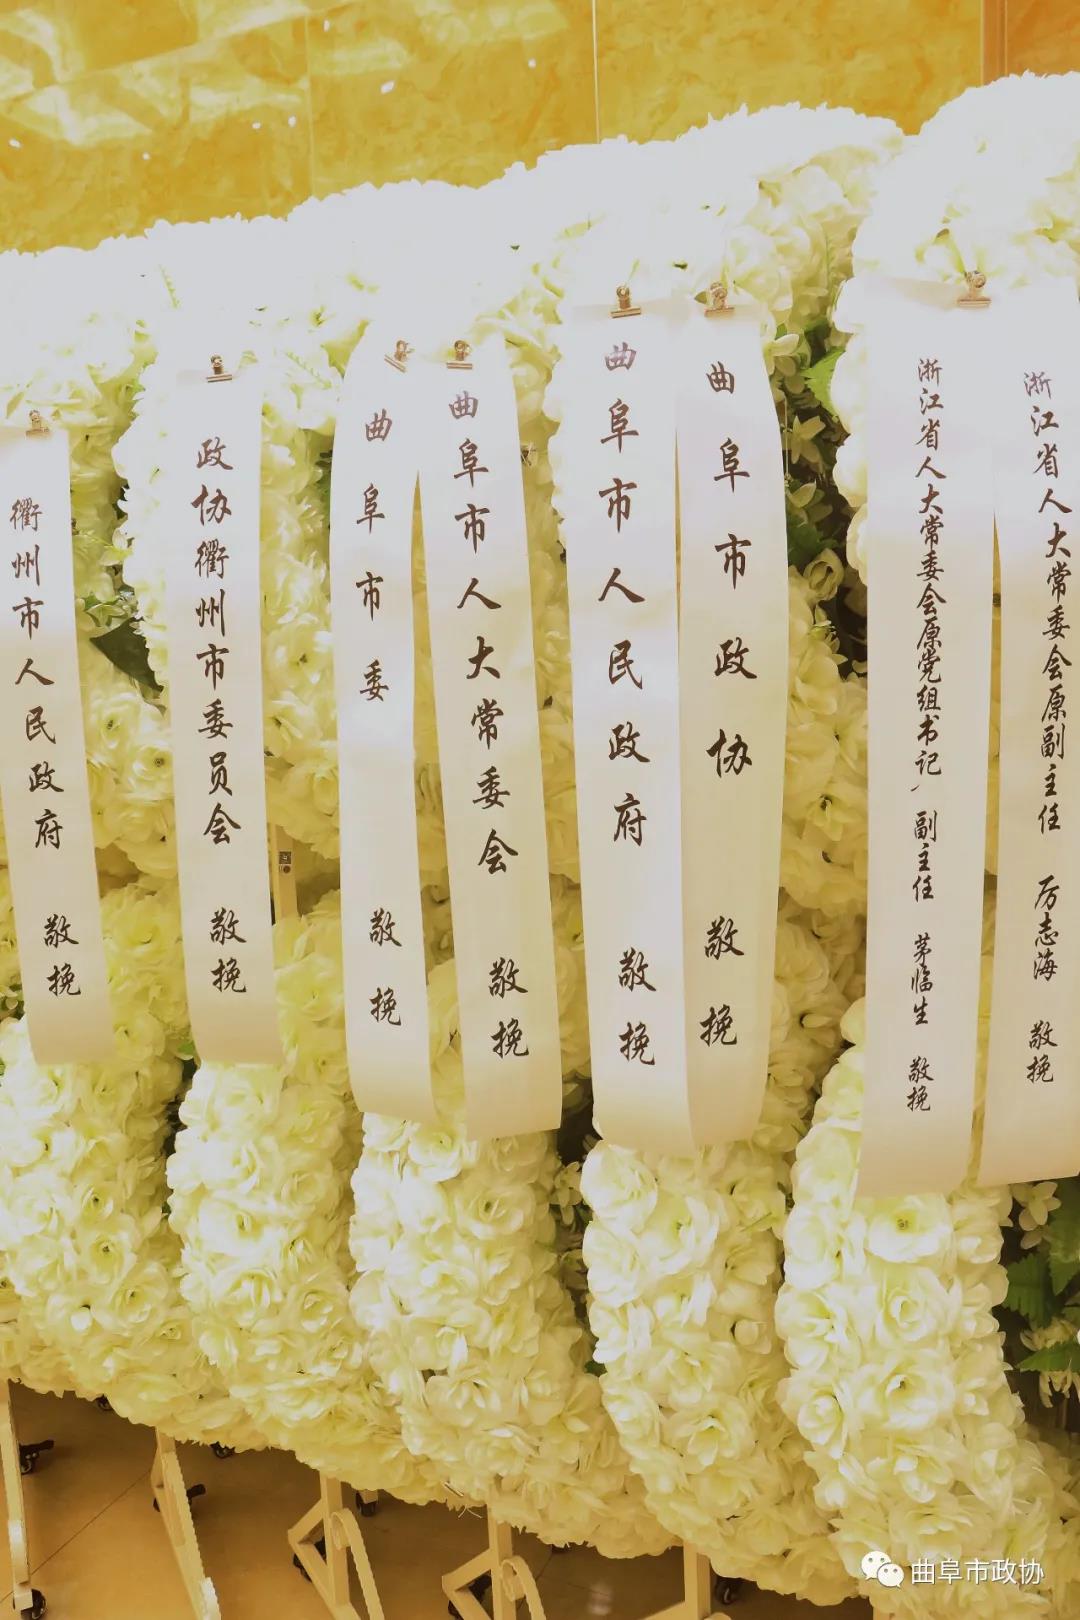 衢州市人民政府 敬挽
政协衢州市委员会 敬挽
曲阜市委 敬挽
曲阜市人大常委会 敬挽
曲阜市人民政府 敬挽
曲阜市政协 敬挽
浙江省人大常委会原党组书记、副主任 茅临生 敬挽
浙江省人大常委会原副主任 厉志海 敬挽
曲阜市政协